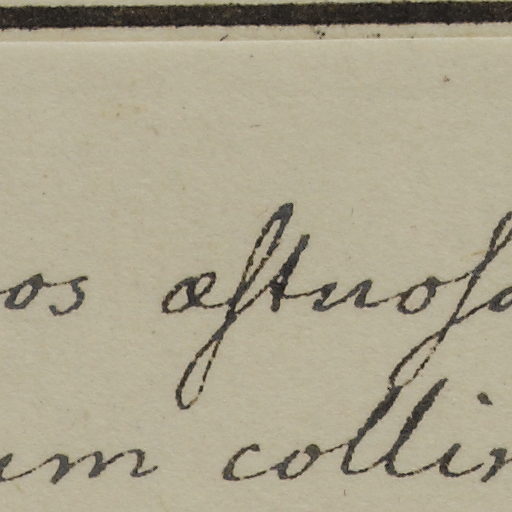 os æſtuoſa
um collin